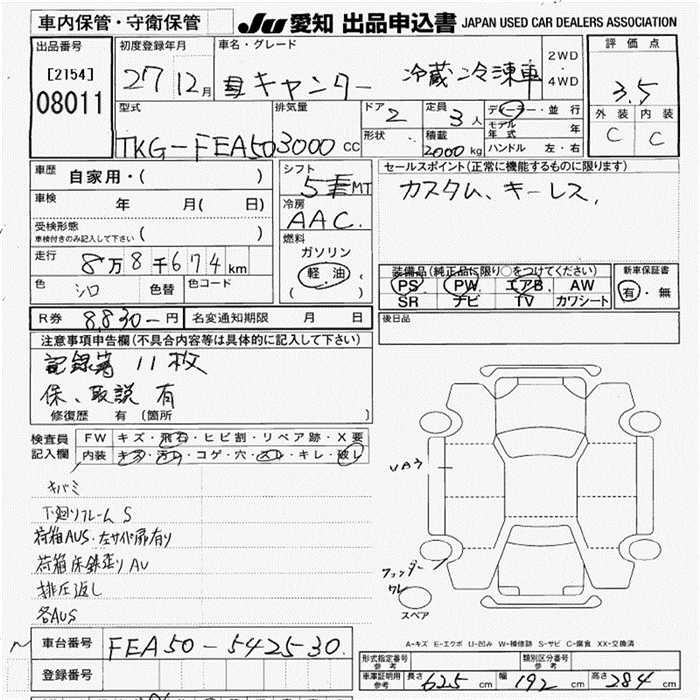 車内保管・守衛保管
JU 愛知 出品申込書 JAPAN USED CAR DEALERS ASSOCIATION
出品番号
[2154]
08011
初度登録年月
27 12月
車名・グレード
キャンター 冷蔵冷凍車
2WD
4WD
評価点
3.5
外装 内装
C C
型式
TKG-FEA50
排気量
3000cc
ドア 2
形状
定員 3人
積載 2000kg
ディーラー・並行
モデル年式 年
ハンドル 左・右
車歴
自家用・( )
車検
年 月( 日)
受検形態
車検付きのみ記入して下さい ( )
走行
8万8千674km
色 シロ 色替 色コード
シフト
5 MT
冷房
AAC
燃料
ガソリン
軽油
( )
セールスポイント(正常に機能するものに限ります)
カスタム、キーレス、
装備品(純正品に限り○をつけてください)
PS PW エアB AW
SR ナビ TV カワシート
新車保証書
有・無
後日品
R券 8,830-円 名変通知期限 月 日
注意事項申告欄(不具合内容等は具体的に記入して下さい)
記録簿 11枚
保、取説 有
修復歴 有 (箇所 )
検査員記入欄
FW キズ・飛石・ヒビ割・リペア跡・X要
内装 キズ・汚れ・コゲ・穴・スレ・キレ・破れ
キバミ
下廻りフレームS
荷箱AUS・左サイド扉有り
荷箱床鉄走りAU
排圧返し
各AUS
UA3
フェンダー
ワレ
スペア
A-キズ E-エクボ U-凹み W-補修跡 S-サビ C-腐食 XX-交換済
車台番号 FEA50-542530.
登録番号
形式指定番号 参考
類別区分番号 参考
車庫証明用 参考 長さ 625cm 幅 192cm 高さ 284cm